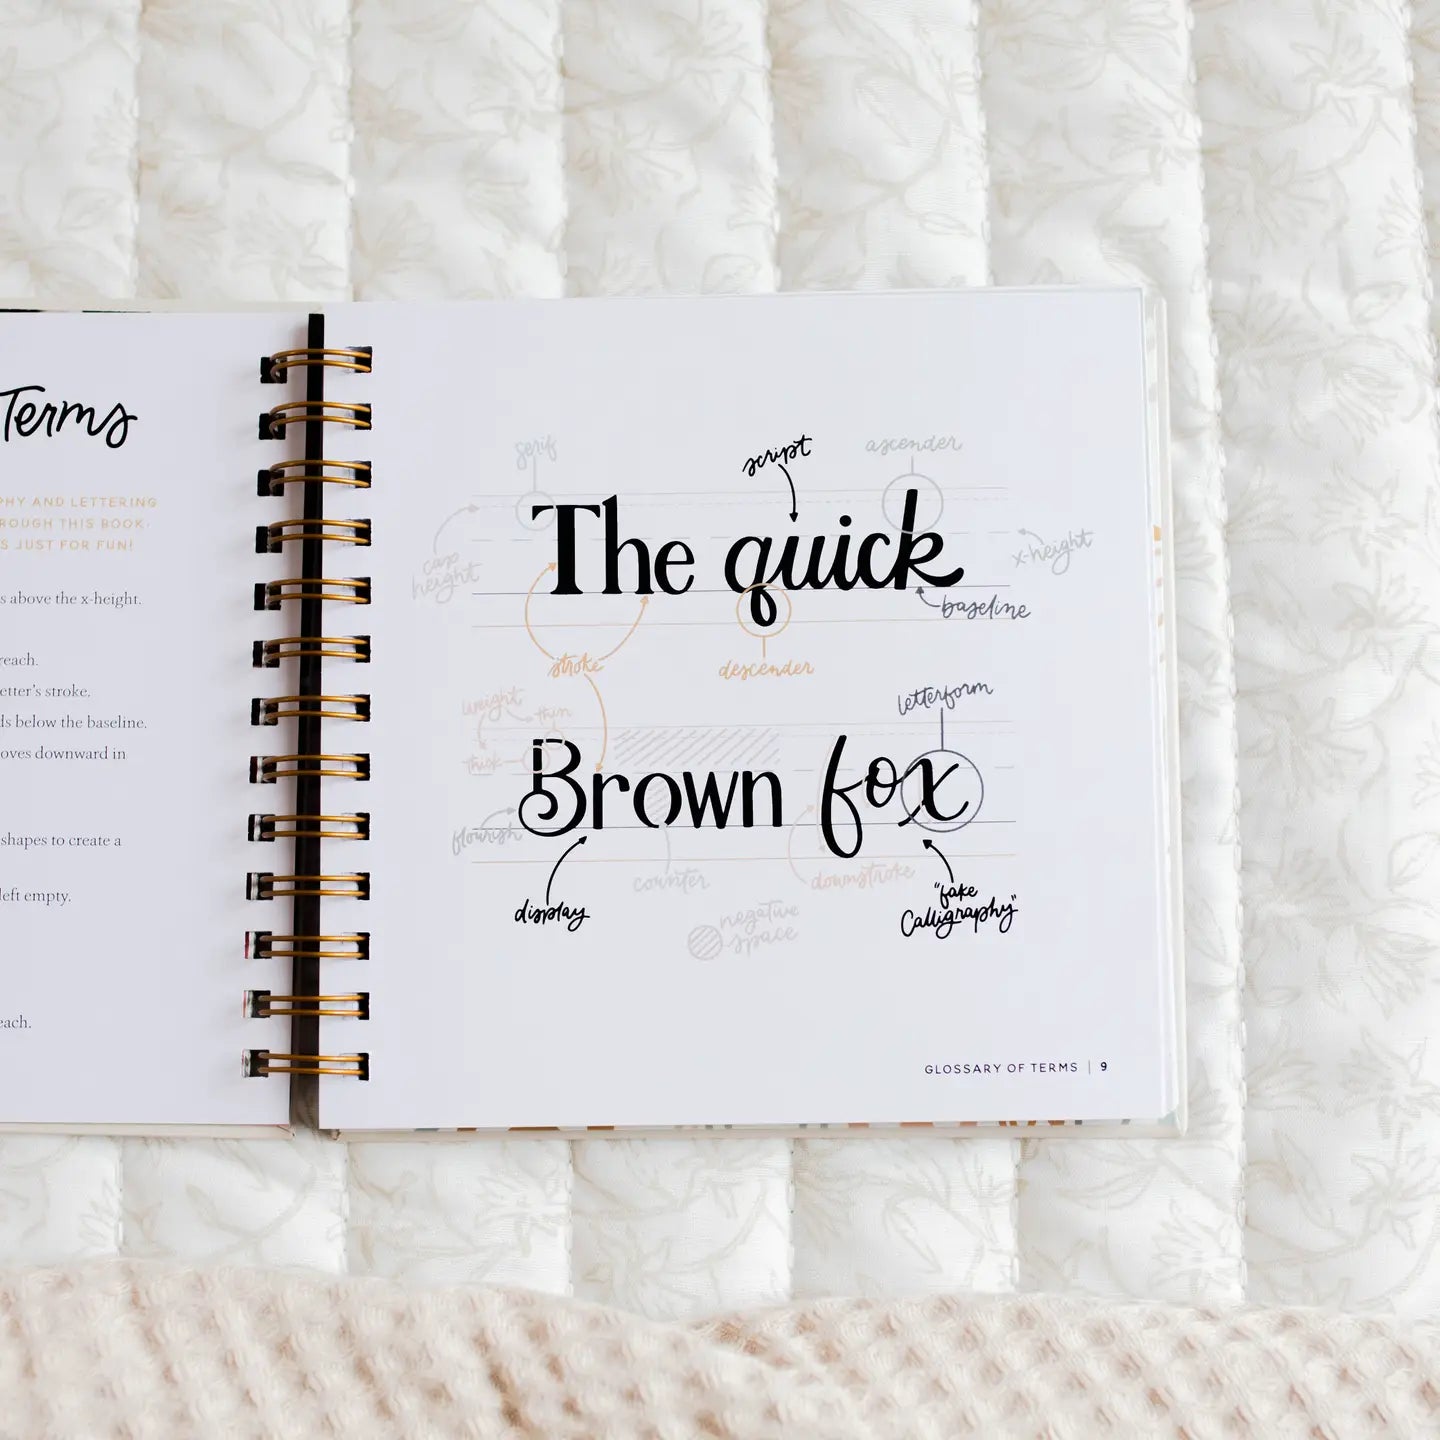 Terms
PHY AND LETTERING
ROUGH THIS BOOK.
S JUST FOR FUN!
s above the x-height.
reach.
etter's stroke.
ds below the baseline.
oves downward in
shapes to create a
left empty.
each.
serif
script
ascender
cap
height
The quick
x-height
baseline
stroke
descender
weight
thin
thick
letterform
Brown fox
flourish
counter
downstroke
display
negative
space
"fake
Calligraphy"
GLOSSARY OF TERMS | 9